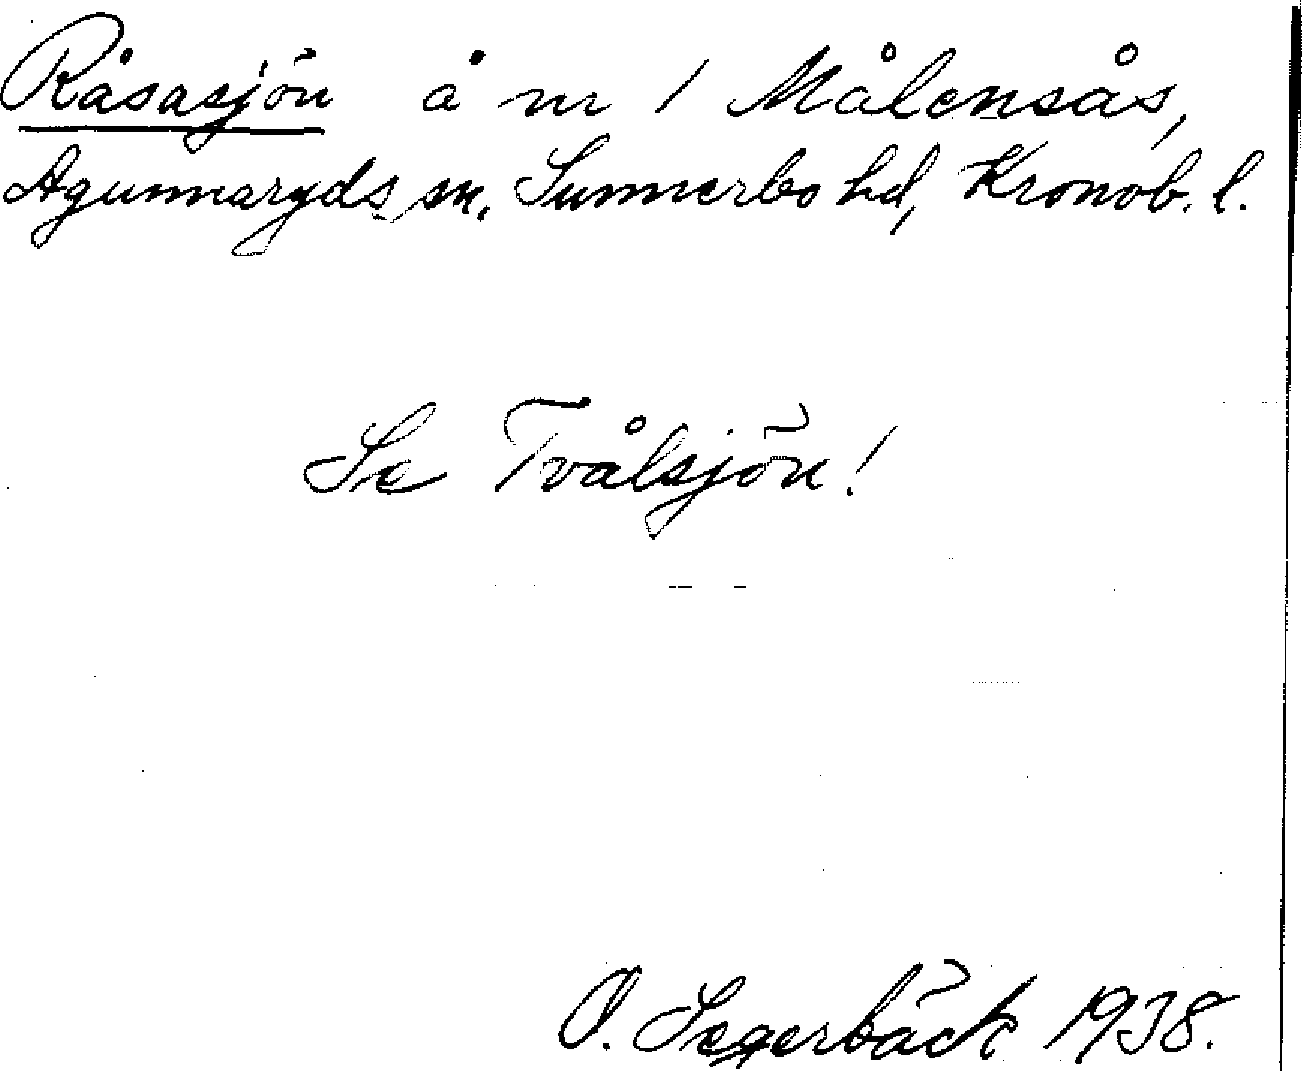 Råsasjön å nr 1 Målensås,
Agunnaryds sn. Sunnerbo hd, Kronob. l.
Se Tvålsjön!
O. Segerbäck 1938.